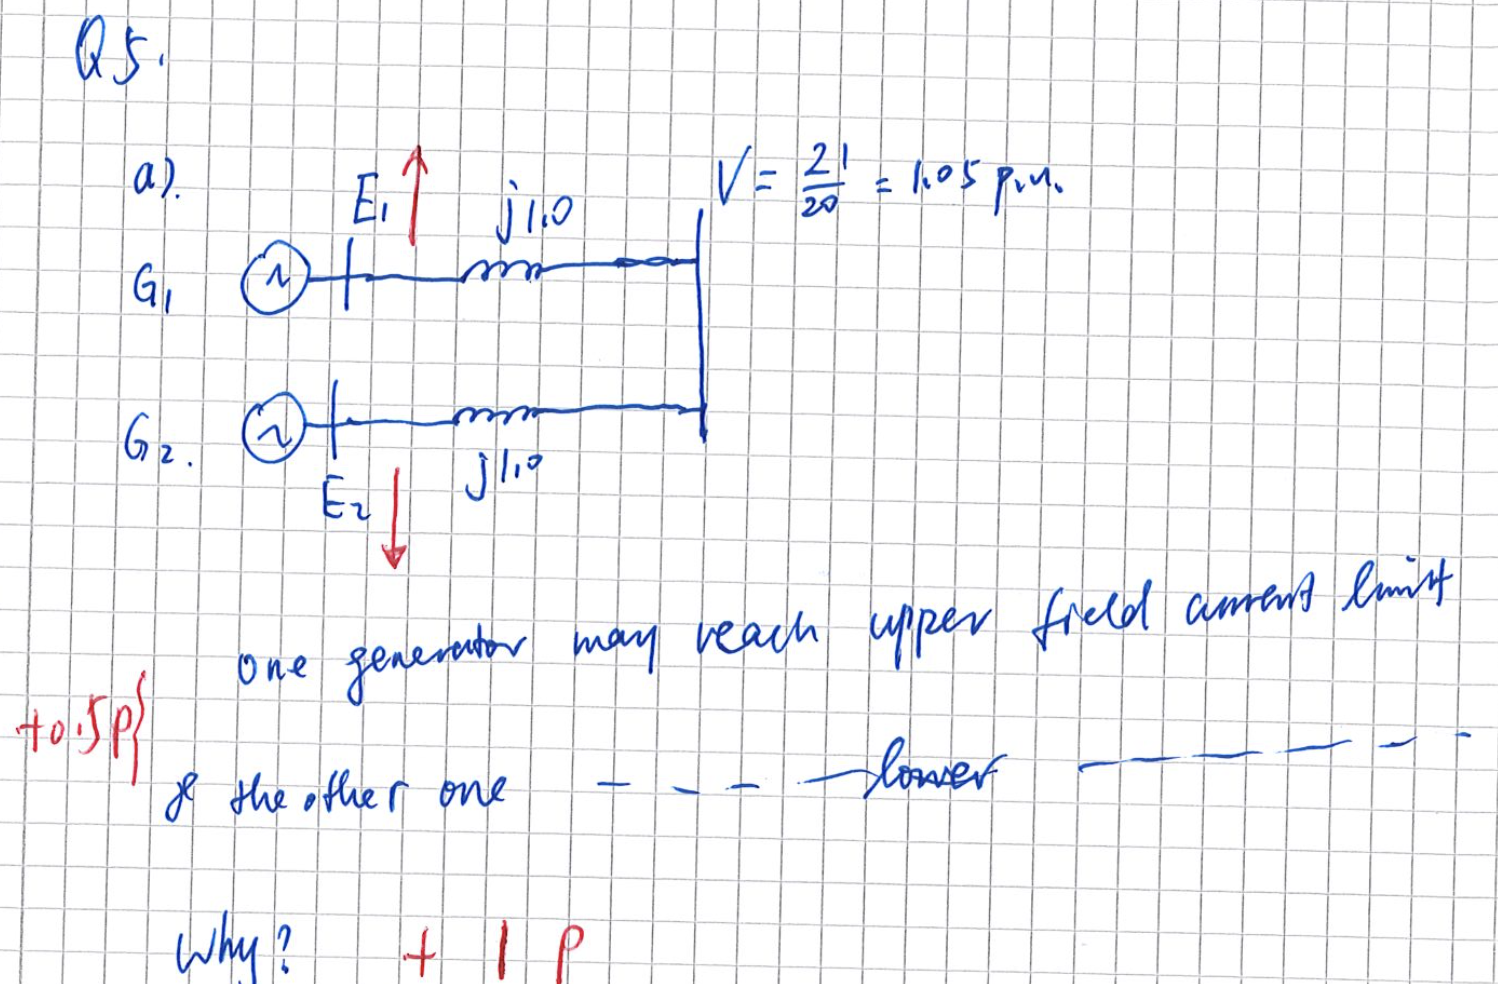 Q5.
a).
E₁
j1.0
V = 21/20 = 1.05 p.u.
G₁
G₂.
E₂
j1.0
one generator may reach upper field current limit
+0.5p
& the other one - - - - lower - - -
Why? + 1 p